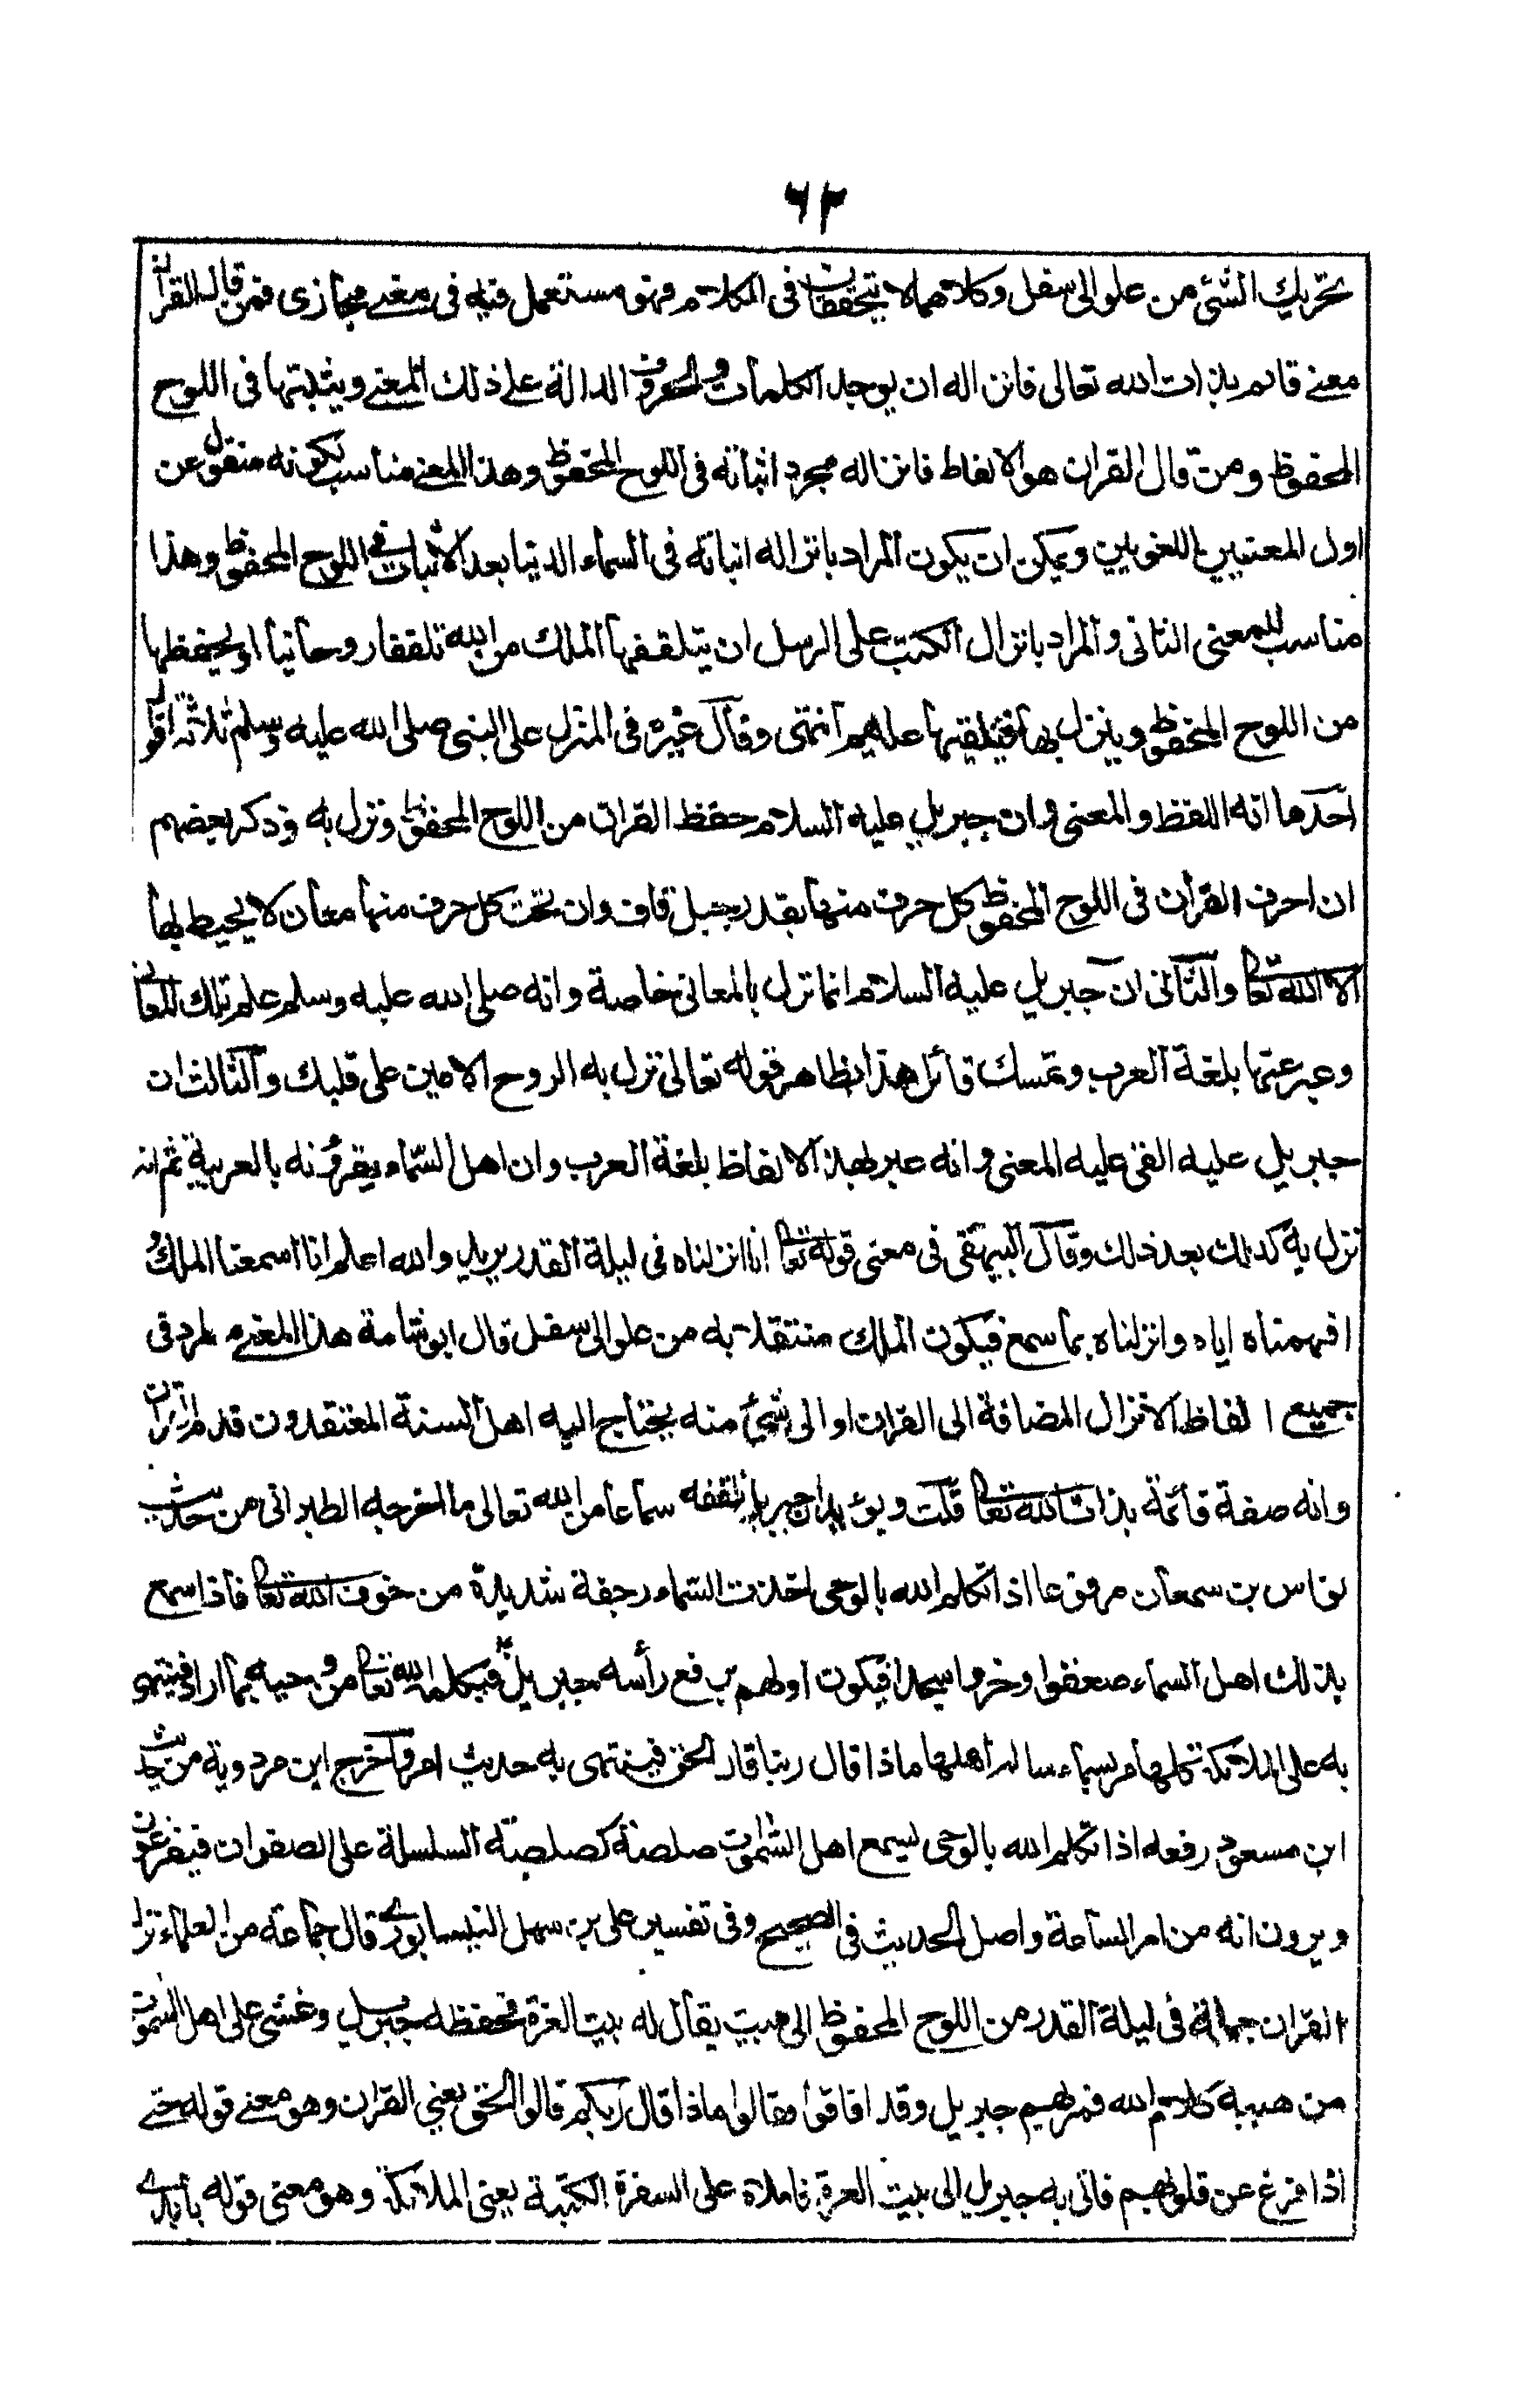 ٦٢
تحريك الشئ من علو الى سفل وكلاهما لا يتحققان فى الكلام فهو مستعمل فيه فى معنے مجازى فمن قال القران
معنے قائم بذات الله تعالى فانزاله ان يوجد الكلمات والحروف الدالة علے ذلك المعنے ويثبتها فى اللوح
المحفوظ ومن قال القران هو الالفاظ فانزاله مجرد اثباته فى اللوح المحفوظ وهذا المعنے مناسب لكونه منقول عن
اول المعنيين اللغويين ويمكن ان يكون المراد بانزاله اثباته فى السماء الدنيا بعد الاثبات فى اللوح المحفوظ وهذا
مناسب للمعنى الثانى والمراد بانزال الكتب على الرسل ان يتلقفها الملك من الله تلقفا روحانيا او يحفظها
من اللوح المحفوظ وينزل بها فيلقيها عليهم انتهى وقال غيره فى المنزل على النبى صلى الله عليه وسلم ثلاثة اقوال
احدها انه اللفظ والمعنى وان جبريل عليه السلام حفظ القران من اللوح المحفوظ ونزل به وذكر بعضهم
ان احرف القرأن فى اللوح المحفوظ كل حرف منها بقدر جبل قاف وان تحت كل حرف منها معان لا يحيط بها
الا الله تعا والثانى ان جبريل عليه السلام انما نزل بالمعانى خاصة وانه صلى الله عليه وسلم علم تلك المعانى
وعبر عنها بلغة العرب وتمسك قائل هذا بظاهر قوله تعالى نزل به الروح الامين على قلبك والثالث ان
جبريل عليه القى عليه المعنى وانه عبر بهذه الالفاظ بلغة العرب وان اهل السماء يقرؤنه بالعربية ثم انه
نزل به كذلك بعد ذلك وقال البيهقى فى معنى قوله تعا انا انزلناه فى ليلة القدر يريد والله اعلم انا اسمعنا الملك و
افهمناه اياه وانزلناه بما سمع فيكون الملك منتقلا به من علو الى سفل قال ابو شامة هذا المعنے مطرد فى
جميع الفاظ الانزال المضافة الى القران او الى شئ منه يحتاج اليه اهل السنة المعتقدون قدم القران
وانه صفة قائمة بذات الله تعا قلت ويؤيد ان جبريل تلقفه سماعا من الله تعالى ما اخرجه الطبرانى من حديث
نواس بن سمعان مرفوعا اذا تكلم الله بالوحى اخذت السماء رجفة شديدة من خوف الله تعا فاذا سمع
بذلك اهل السماء صعقوا وخروا سجدا فيكون اولهم يرفع رأسه جبريل فيكلمه الله تعا من وحيه بما اراد فينتهى
به على الملائكة كلما مر بسماء ساله اهلها ماذا قال ربنا قال الحق فينتهى به حديث امر واخرج ابن مردوية من حديث
ابن مسعود رفعه اذا تكلم الله بالوحى يسمع اهل السموت صلصلة كصلصلة السلسلة على الصفوان فيفزعون
ويرون انه من امر الساعة واصل الحديث فى الصحيح وفى تفسير على بن سهل النيسابورے قال جماعة من العلماء نزل
القران جملة فى ليلة القدر من اللوح المحفوظ الى بيت يقال له بيت العزة فحفظه جبريل وغشى على اهل السموت
من هيبة كلام الله فمر بهم جبريل وقد افاقوا فقالوا ماذا قال ربكم قالوا الحق يعني القران وهو معنے قوله حتے
اذا فزع عن قلوبهم فاتى به جبريل الى بيت العزة فاملاه على السفرة الكتبة يعنى الملائكة وهو معنى قوله بأيدے